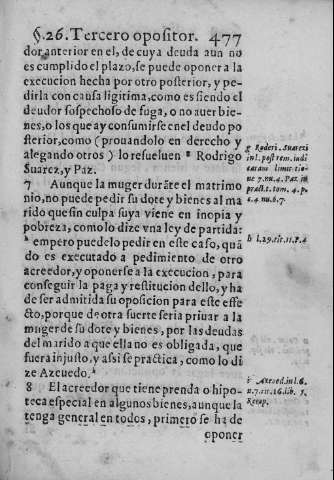 §.26. Tercero opositor. 477
dor anterior en el, de cuya deuda aun no
es cumplido el plazo, se puede oponer a la
execucion hecha por otro posterior, y pe-
dirla con causa ligitima, como es siendo el
deudor sospechoso de fuga, o no auer bie-
nes, o los que ay consumirse en el deudo po
sterior, como (prouandolo en derecho y
alegando otros) lo resueluen ᵍ Rodrigo
Suarez, y Paz.
7 Aunque la muger durãte el matrimo
nio, no puede pedir su dote y bienes al ma
rido que sin culpa suya viene en inopia y
pobreza, como lo dize vna ley de partida:
ʰ empero puedelo pedir en este caso, quã
do es executado a pedimiento de otro
acreedor, y oponerse a la execucion, para
conseguir la paga y restitucion dello, y ha
de ser admitida su oposicion para este effe
cto, porque de otra suerte seria priuar a la
muger de su dote y bienes, por las deudas
del marido a que ella no es obligada, que
fuera injusto, y assi se practica, como lo di
ze Azeuedo.
8 El acreedor que tiene prenda o hipo-
teca especial en algunos bienes, aunque la
tenga general en todos, primero se ha de
oponer
g Roderi. Suarez
in l. post rem. indi
catam limit tio-
ne 7. nu. 4. Paz. in
pract. t. tom. 4. p.
c. 4. nu. 6. 7.
h l. 29. tit. 11. P. 4
i Azeued. in l. 6.
n. 7. tit. 16. lib. 5.
Recop.